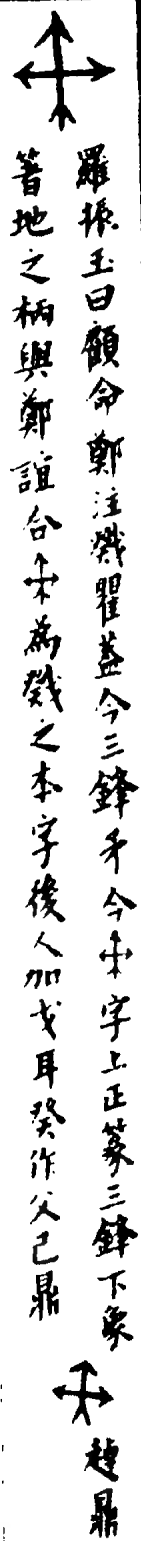 羅振玉曰顧命鄭注戣瞿蓋今三鋒矛今字上正篆三鋒下象
著地之柄與鄭誼合為戣之本字後人加戈耳癸作父己鼎
趞鼎